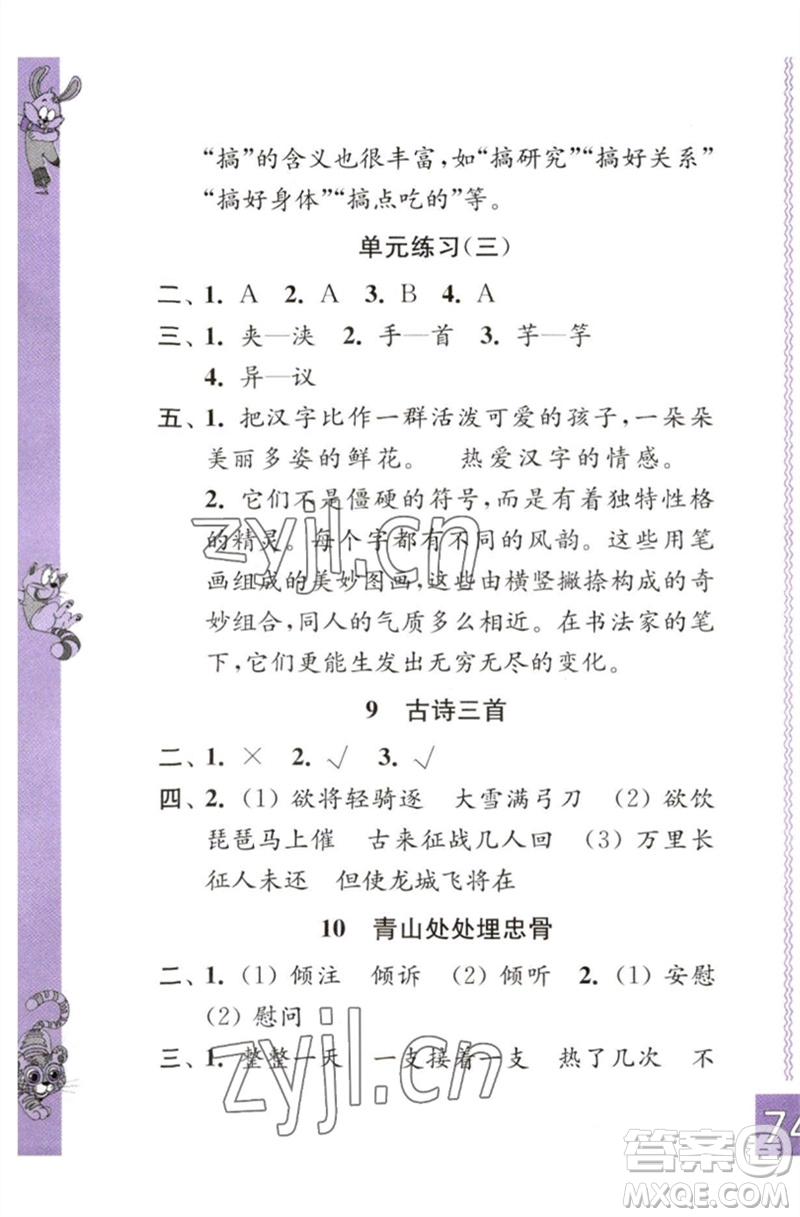 “搞”的含义也很丰富，如“搞研究”“搞好关系”
“搞好身体”“搞点吃的”等。
单元练习(三)
二、1. A 2. A 3. B 4. A
三、1. 夹—浃 2. 手—首 3. 芋—竽
4. 异—议
五、1. 把汉字比作一群活泼可爱的孩子，一朵朵
美丽多姿的鲜花。 热爱汉字的情感。
2. 它们不是僵硬的符号，而是有着独特性格
的精灵。每个字都有不同的风韵。这些用笔
画组成的美妙图画，这些由横竖撇捺构成的奇
妙组合，同人的气质多么相近。在书法家的笔
下，它们更能生发出无穷无尽的变化。
9 古诗三首
二、1. × 2. √ 3. √
四、2. (1) 欲将轻骑逐 大雪满弓刀 (2) 欲饮
琵琶马上催 古来征战几人回 (3) 万里长
征人未还 但使龙城飞将在
10 青山处处埋忠骨
二、1. (1) 倾注 倾诉 (2) 倾听 2. (1) 安慰
(2) 慰问
三、1. 整整一天 一支接着一支 热了几次 不
74
zyjl.cn
zyjl.cn
答案圈
MXQE.COM